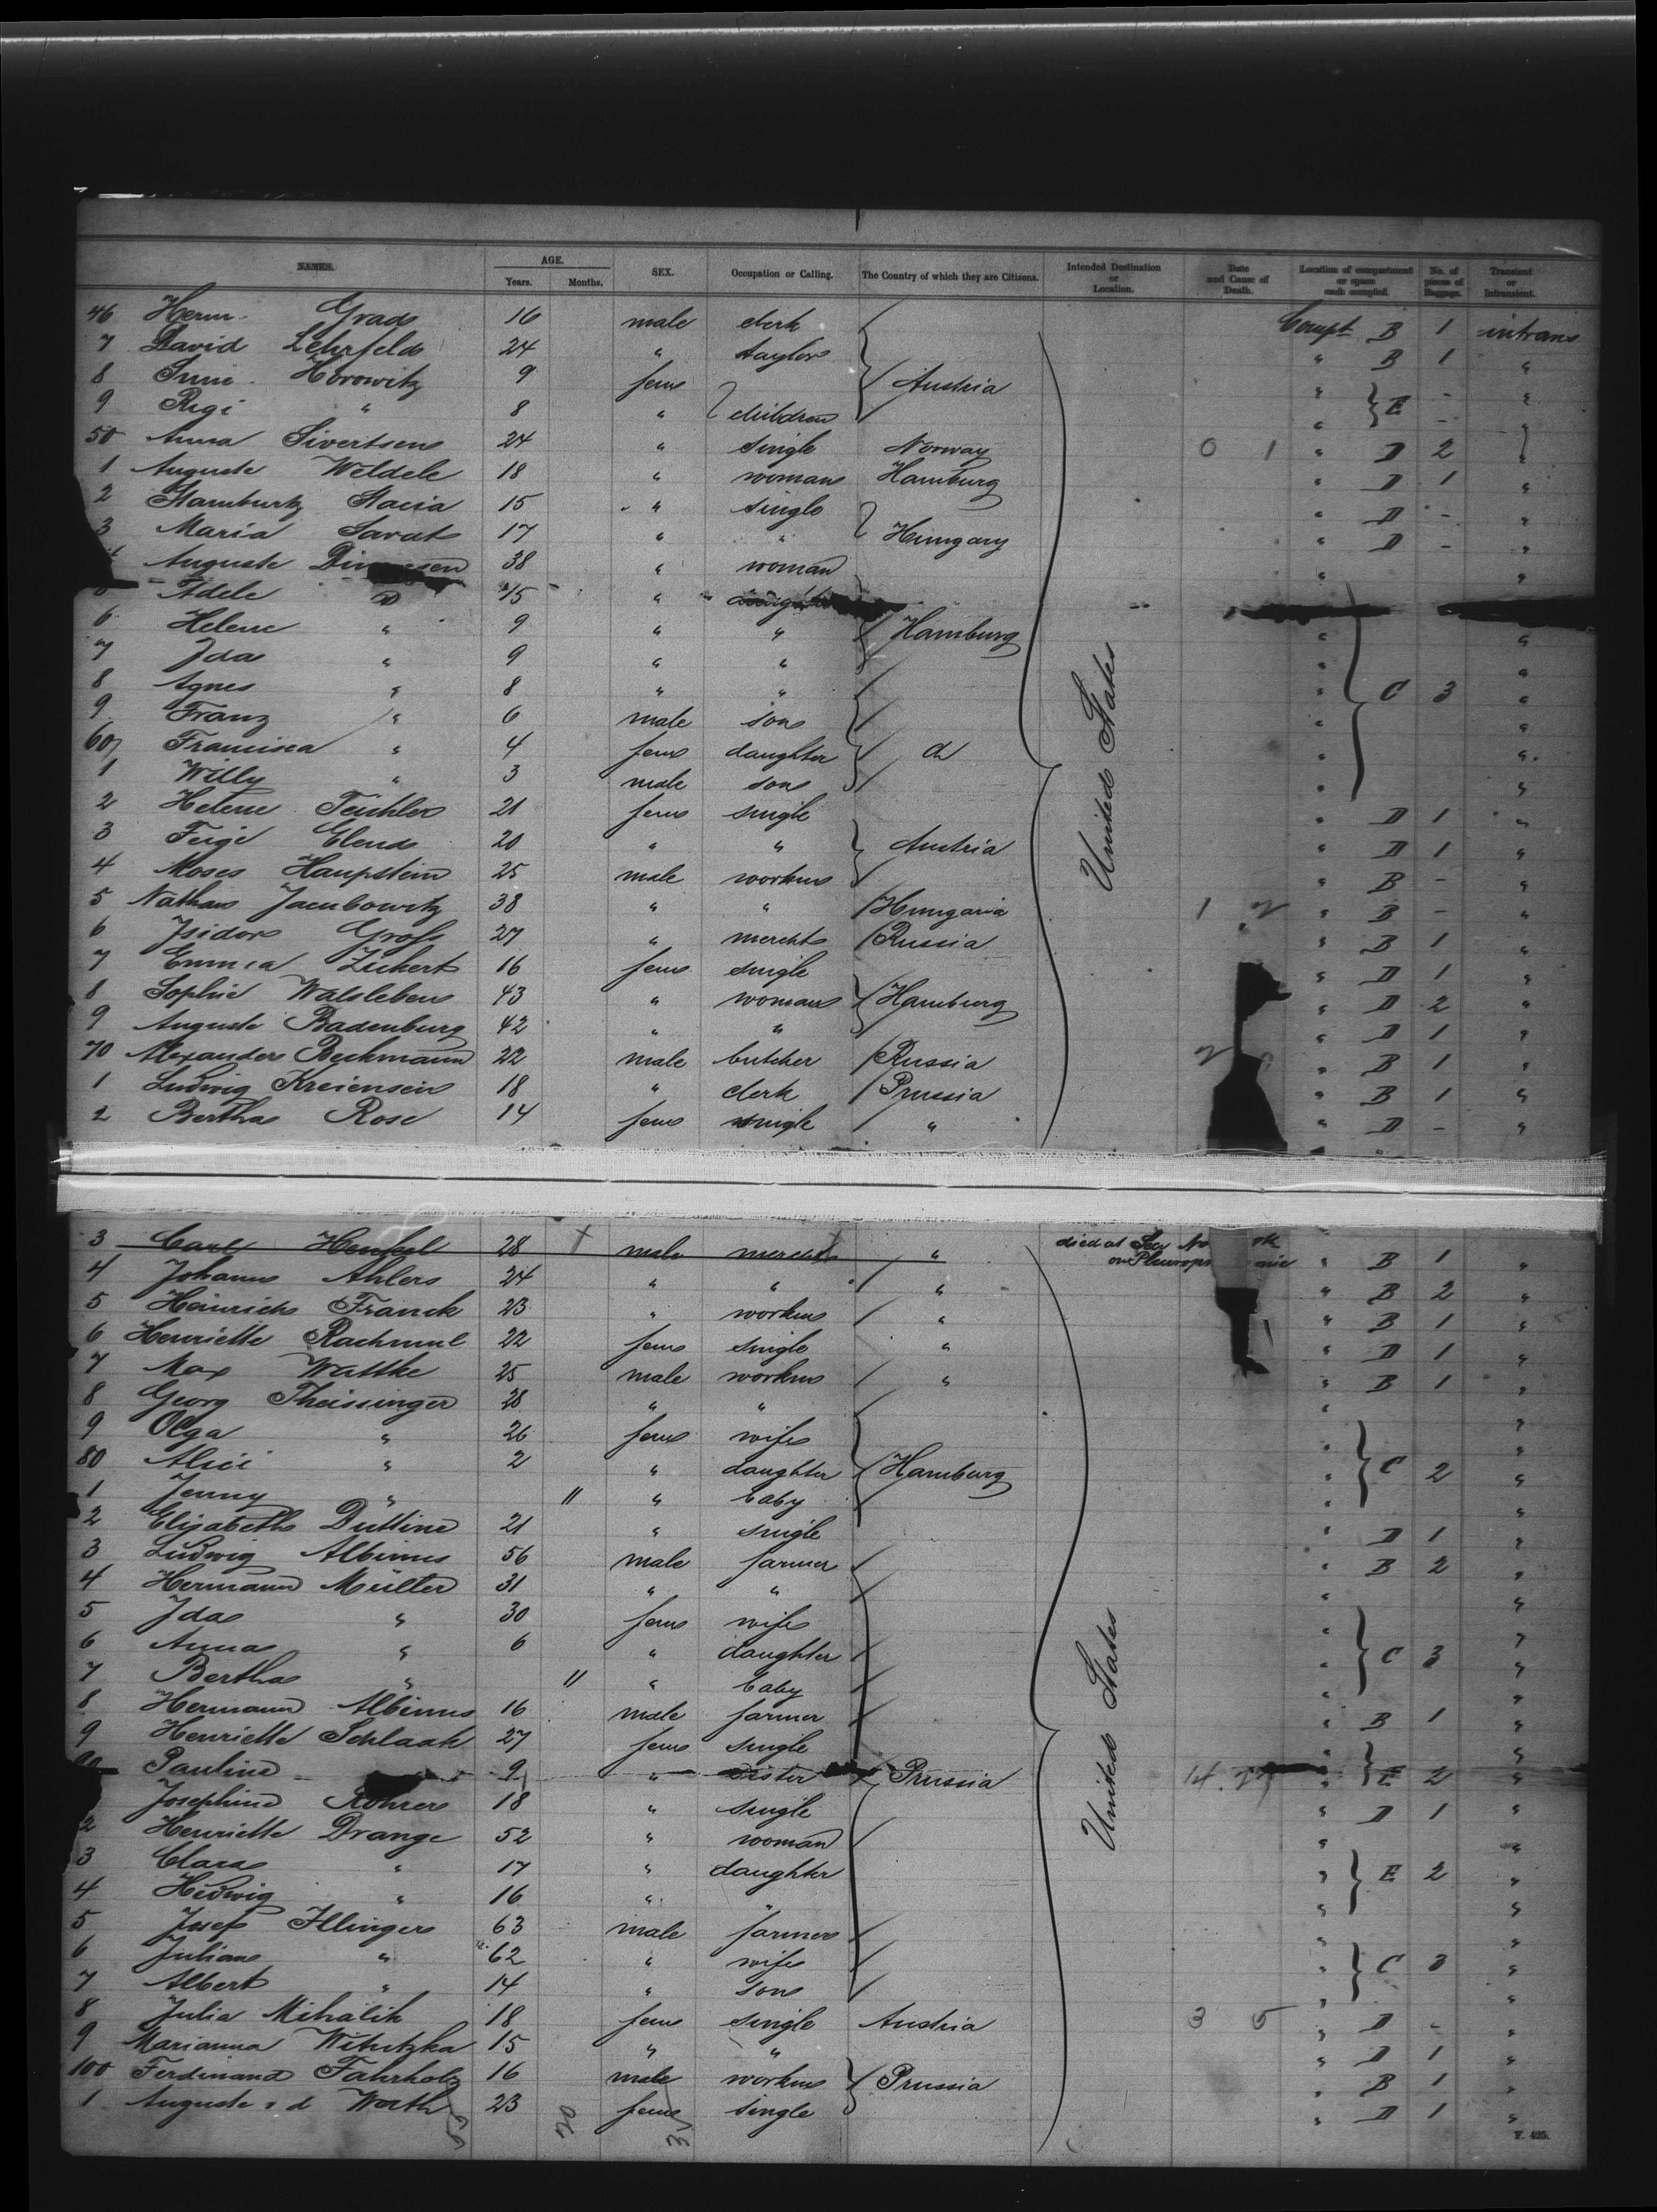 NAMES. AGE. Years. Months. SEX. Occupation or Calling. The Country of which they are Citizens. Intended Destination or Location. Date and Cause of Death. Location of compartment or space each occupied. No. of pieces of Baggage. Transient or Intransient.
46 Herm. Grads 16 male clerk Compt B 1 intrans
7 David Lehrfeld 24 " taylor " B 1 "
8 Horowitz 9 fem Austria " "
9 Regi " 8 " children " E "
50 Anna Sivertsen 24 " single Norway 0 1 " D 2
1 Auguste Weldele 18 " woman Hamburg " D 1 "
2 Stacia 15 " single " D - "
3 Maria Savat 17 " " Hungary " D - "
Auguste 38 " woman " "
Adele 15 "
6 Helene " 9 " " Hamburg " "
7 Ida " 9 " " " "
8 Agnes " 8 " " " C 3 "
9 Franz " 6 male son " "
60 Francisca " 4 fem daughter " "
1 Willy " 3 male son " "
United States
2 Helene Teichler 21 fem single " D 1 "
3 Feige Elend 20 " " Austria " D 1 "
4 Moses Haupstein 25 male workm " B - "
5 Nathan Jacubowitz 38 " " Hungaria 1 " B - "
6 Isidor Gross 27 " mercht Russia " B 1 "
7 Emma Zickert 16 fem single " D 1 "
8 Sophie Walsleben 43 " woman Hamburg " D 2 "
9 Auguste Badenburg 42 " " " D 1 "
70 Alexander Beckmann 22 male butcher Russia " B 1 "
1 Ludwig Kreiensen 18 " clerk Prussia " B 1 "
2 Bertha Rose 14 fem single " " D - "
3 Carl Henkel 28 male mercht " died at Sea " B 1 "
4 Johann Ahlers 24 " " " " B 2 "
5 Heinrich Franck 23 " workm " " B 1 "
6 Henriette Rachmul 22 fem single " " D 1 "
7 Max Wattke 25 male workm " " B 1 "
8 Georg Theissinger 28 " " "
9 Olga " 26 fem wife " "
80 Alice " 2 " daughter Hamburg " C 2 "
1 Jenny " 11 " baby " "
2 Elisabeth Duttine 21 " single " D 1 "
3 Ludwig Albinus 56 male farmer " B 2 "
4 Hermann Müller 31 " " " "
5 Ida " 30 fem wife " "
6 Anna " 6 " daughter " C 3 "
7 Bertha " 11 " baby " "
8 Hermann Albinus 16 male farmer " B 1 "
9 Henriette Schlaak 27 fem single " "
90 Pauline 9 " sister Prussia " E 2 "
Josephine Rohrer 18 " single " D 1 "
United States
2 Henriette Drange 52 " woman " "
3 Clara " 17 " daughter " E 2 "
4 Hedwig " 16 " " " "
5 Josef Illinger 63 male farmer " "
6 Juliane " 62 " wife " C 3 "
7 Albert " 14 " son " "
8 Julia Mihalik 18 fem single Austria 3 5 " D - "
9 Marianna Witutzka 15 " " " D 1 "
100 Ferdinand Fahrholz 16 male workm Prussia " B 1 "
1 Auguste Wrath 23 fem single " D 1 "
F. 425.